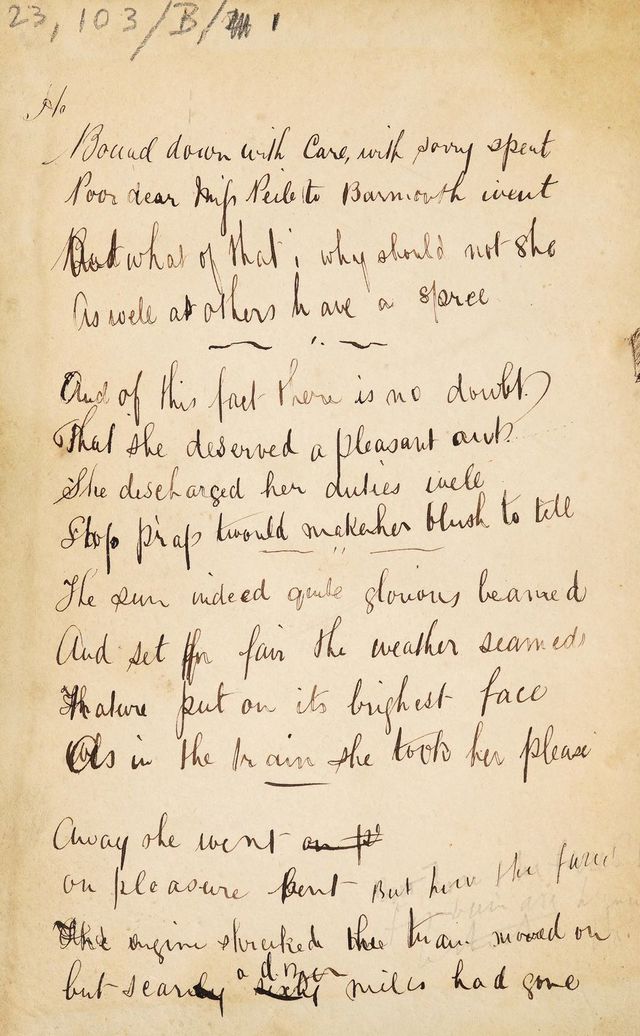 23,103/B/ 1
Bound down with Care, with sorry spent
Poor dear Miss Peile to Barmouth went
But what of that; why should not she
As well as others have a spree
And of this fact there is no doubt
That she deserved a pleasant out
She discharged her duties well
Stop p'raps twould make her blush to tell
The sun indeed quite glorious beamed
And set for fair the weather seamed
Nature put on its brighest face
As in the train she took her please
Away she went on p
on pleasure bent But how the
The engine shreiked the train moved on
but scarcly a dozen sixty miles had gone